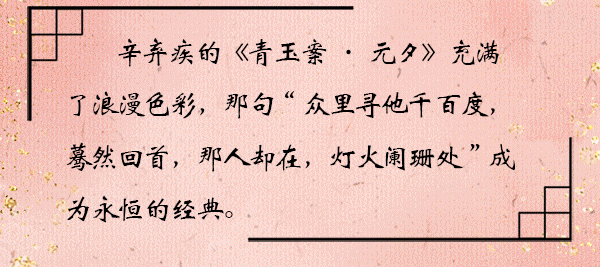 辛弃疾的《青玉案·元夕》充满
了浪漫色彩，那句“众里寻他千百度，
蓦然回首，那人却在，灯火阑珊处”成
为永恒的经典。